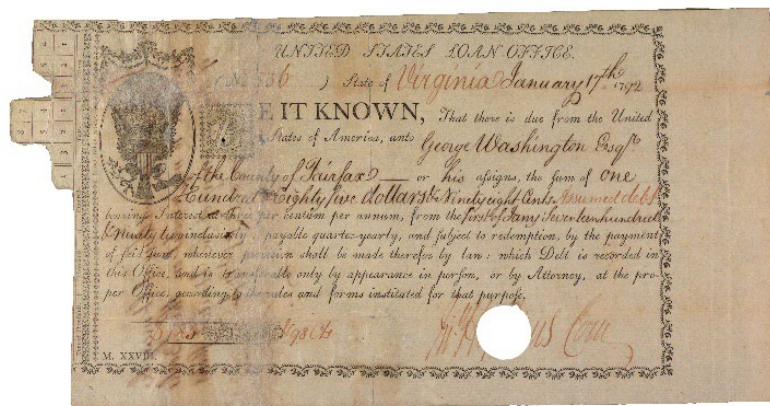 UNITED STATES LOAN OFFICE.
State of Virginia January 17th 1792
BE IT KNOWN, That there is due from the United
States of America, unto George Washington Esqr
of the County of Fairfax or his assigns, the sum of one
Hundred Eighty five dollars & Ninety eight Cents Assumed debt
bearing Interest at three per centum per annum, from the first of Jany Seventeen hundred
& Ninety two inclusively payable quarter-yearly, and subject to redemption, by the payment
of said sum, whenever provision shall be made therefor by law: which Debt is recorded in
this Office, and is transferable only by appearance in person, or by Attorney, at the pro-
per Office, according to the rules and forms instituted for that purpose.
98 Cts
M. XXVIII.